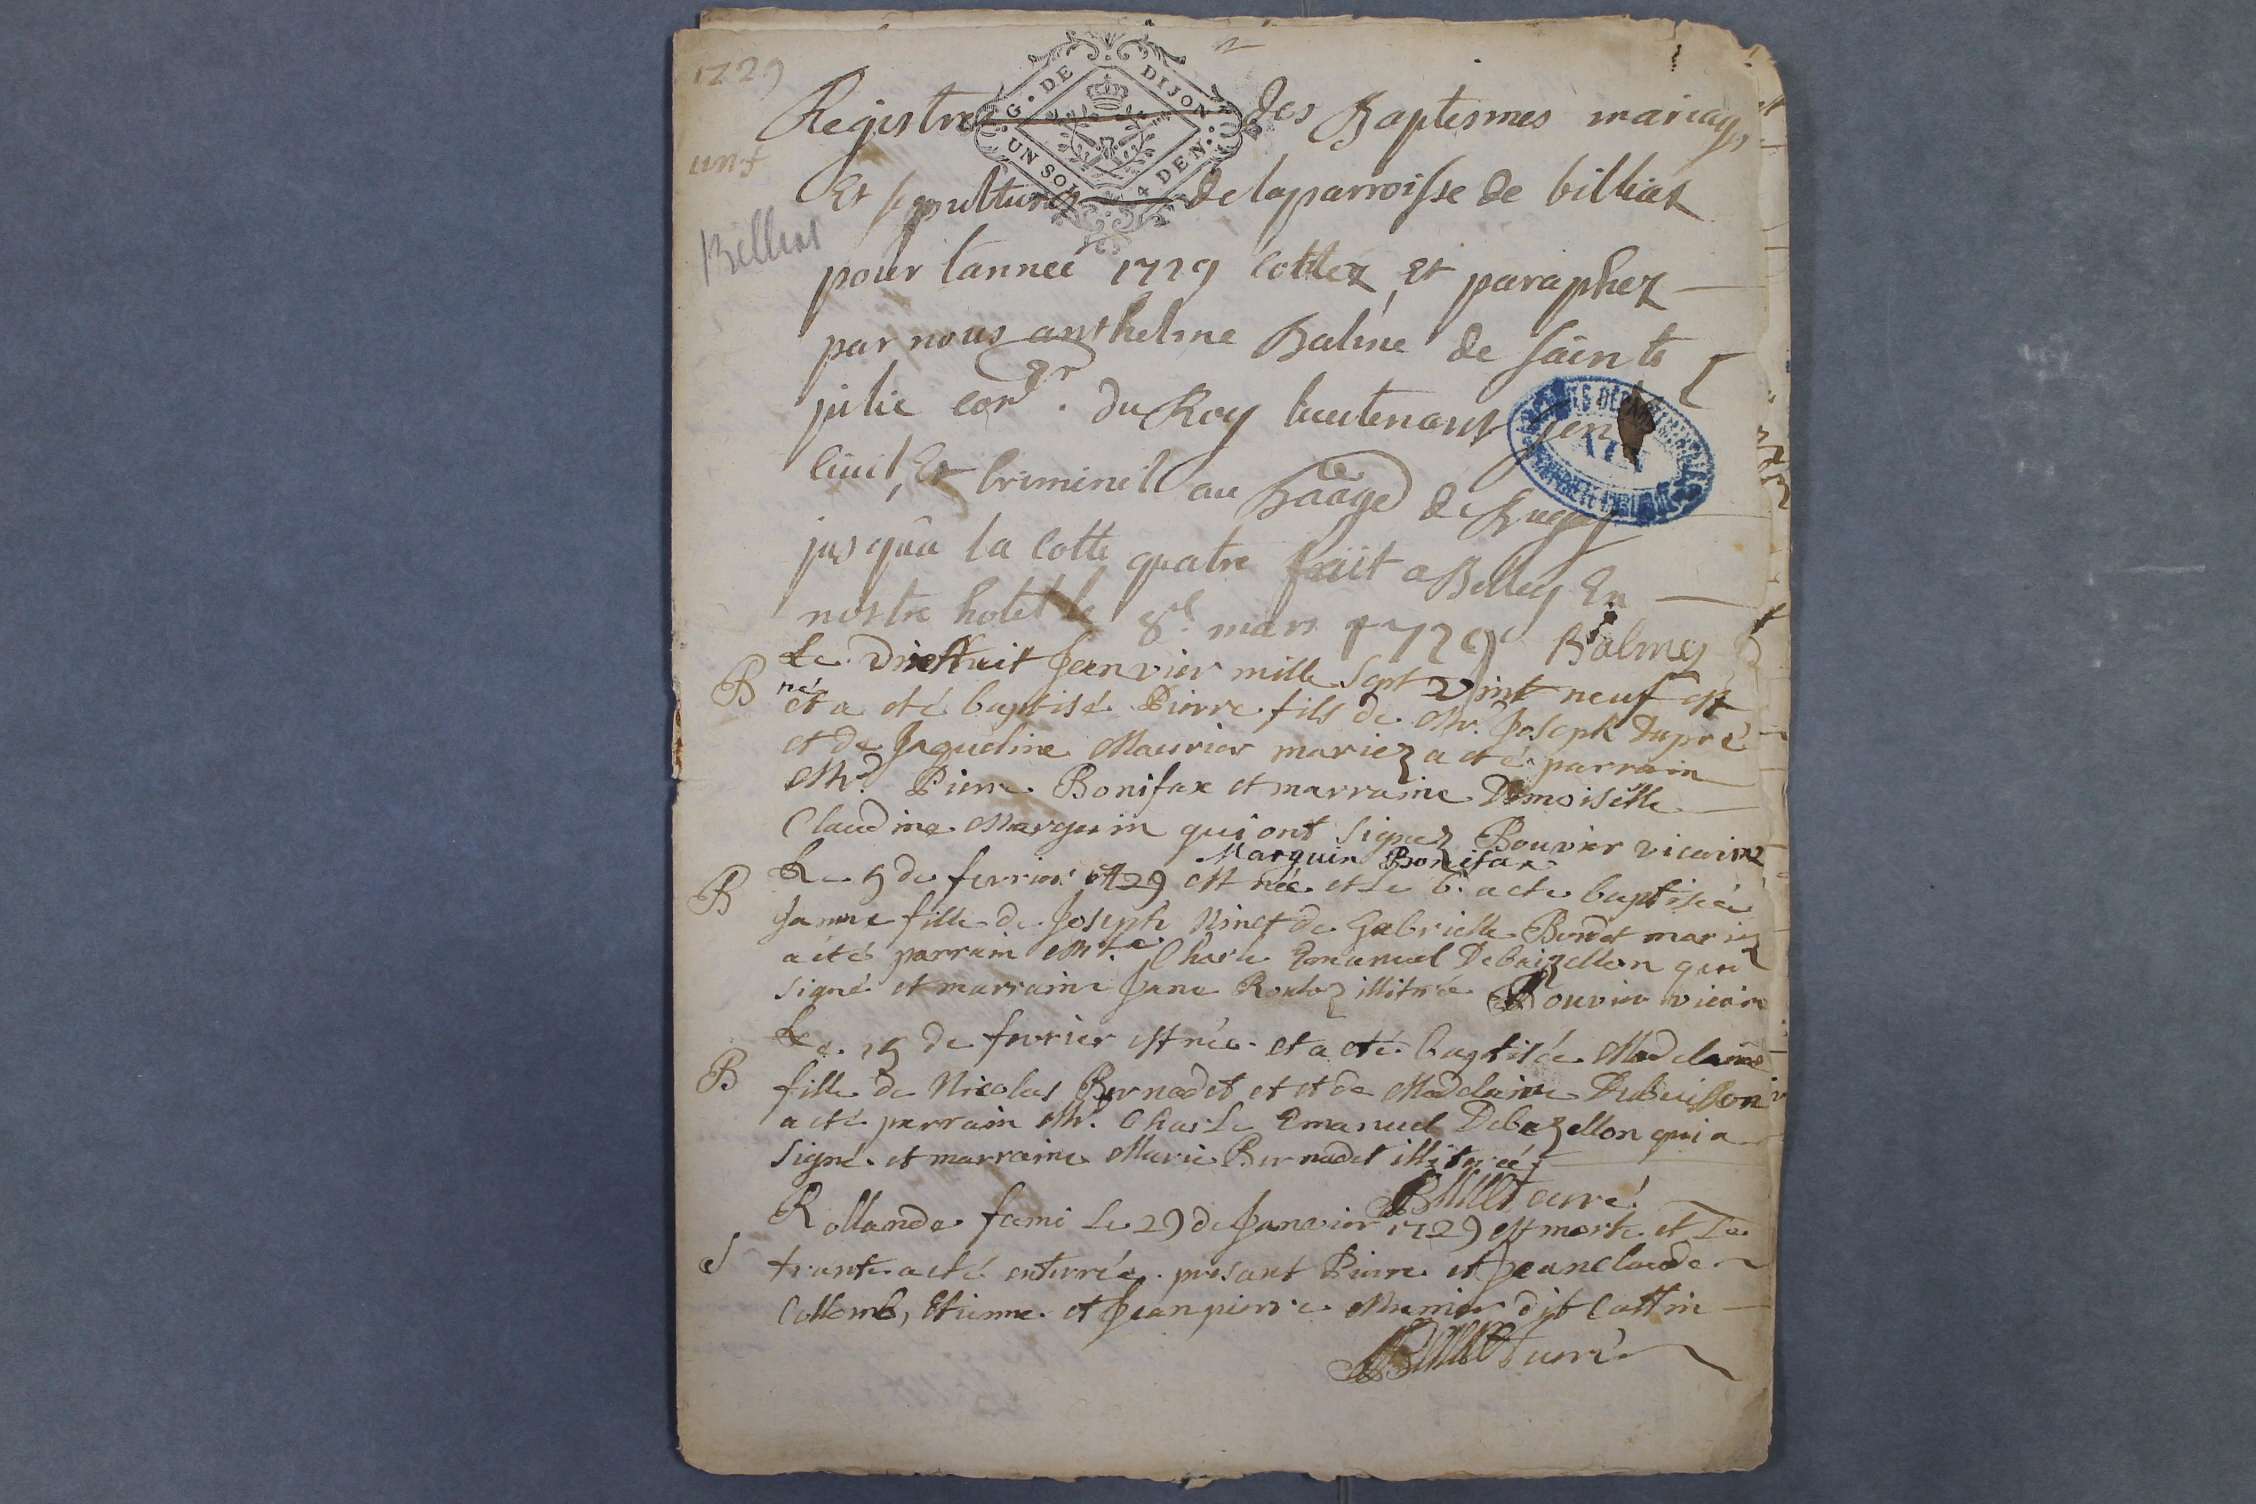 1729
G. DE DIJON
UN SOL 4 DEN.
Registre des Baptesmes mariages
unf
Et sepultures de la parroisse de billiat
Billiat
pour l'anneé 1729 Cottez Et paraphez
par nous anthelme Balme de Sainte
julie con.er du Roy lieutenant gen
Civil, Et Criminel au Baage de Bugey
ARCHIVES DÉPARTEMENTALES
AIN
jusqu'a la Cotte quatre fait a Belley En
nostre hotel le 8e mars 1729 Balme
B
Le Dixhuit Jeanvier mille Sept vint neuf est
né
et a eté baptisé Pierre fils de Mr. Joseph Dupré
et de Jaqueline Maurier mariez a eté parrain
Mr. Pierre Bonifax et marraine Demoiselle
Claudine Marguin qui ont signez Bouvier vicaire
Marguin Bonifax
B
Le 5 de fevrier 1729 est née et le 6. a ete baptiseé
Janne fille de Joseph Ninet de Gabrielle Bondet mariez
a eté parrain Mr. Charle Emanuel Debaizellon qui a
signé et marraine Jane Rouloz illitree Bouvier vicaire
B
Le 15 de fevrier est née et a eté baptisée Madelaine
fille de Nicolas Bernadet et et de Madelaine Dubuisson
a eté parrain Mr. Charle Emanuel Debazellon qui a
signé et marraine Marie Bernadet illitreé
Bullet curé
S
Rollande fami Le 29 de Janvier 1729 est morte et Le
trante a eté enterrée presant Pierre et Jeanclaude
Collomb, Etienne et Jeanpierre Munier dit Cattin
Bullet curé